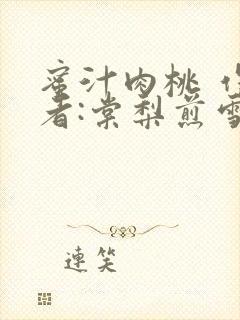 蜜汁肉桃
者:棠梨煎雪
連笑